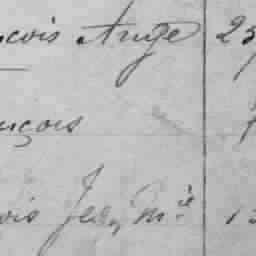 ncois Ange 25
nçois
ois Jean M.ie 13